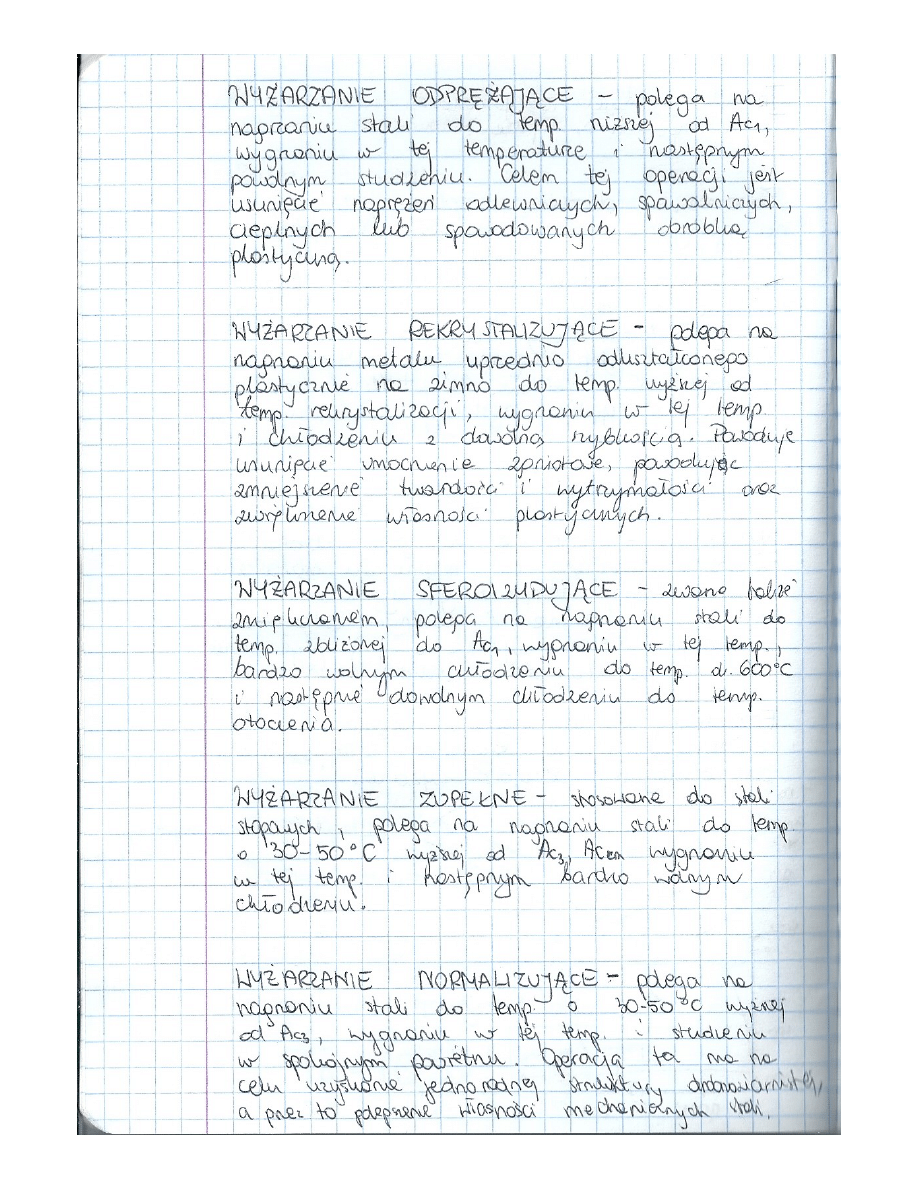 WYŻARZANIE ODPRĘŻAJĄCE - polega na
nagrzaniu stali do temp. niższej od Ac1,
wygrzaniu w tej temperaturze i następnym
powolnym studzeniu. Celem tej operacji jest
usunięcie naprężeń odlewniczych, spawalniczych,
cieplnych lub spowodowanych obróbką
plastyczną.
WYŻARZANIE REKRYSTALIZUJĄCE - polega na
nagrzaniu metalu uprzednio odkształconego
plastycznie na zimno do temp. wyższej od
temp. rekrystalizacji, wygrzaniu w tej temp
i chłodzeniu z dowolną szybkością. Powoduje
usunięcie umocnienie zgniotowe, powodując
zmniejszenie twardości i wytrzymałości oraz
zwiększenie własności plastycznych.
WYŻARZANIE SFEROIZUDUJĄCE - zwane także
zmiękczaniem, polega na nagrzaniu stali do
temp. zbliżonej do Ac1, wygrzaniu w tej temp.,
bardzo wolnym chłodzeniu do temp. d. 600°C
i następnie dowolnym chłodzeniu do temp.
otoczenia.
WYŻARZANIE ZUPEŁNE - stosowane do stali
stopowych, polega na nagrzaniu stali do temp.
o 30-50°C wyższej od Ac3, Accm wygrzaniu
w tej temp. i następnym bardzo wolnym
chłodzeniu.
WYŻARZANIE NORMALIZUJĄCE - polega na
nagrzaniu stali do temp. o 30-50°C wyższej
od Ac3, wygrzaniu w tej temp. i studzeniu
w spokojnym powietrzu. Operacja ta ma na
celu uzyskanie jednorodnej struktury drobnoziarnistej,
a przez to polepszenie własności mechanicznych stali.